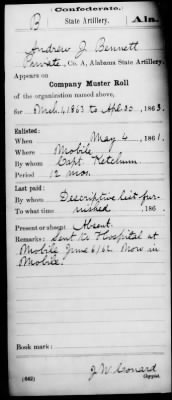 Confederate.
B State Artillery. Ala.
Andrew J. Bennett
Private, Co. A, Alabama State Artillery.
Appears on
Company Muster Roll
of the organization named above,
for Mch 1, 1863 to Apl 30, 1863.
Enlisted:
When May 4, 1861.
Where Mobile
By whom Capt. Ketchum
Period 12 mos.
Last paid:
By whom Descriptive list fur-
To what time nished, 186 .
Present or absent Absent
Remarks: Sent to Hospital at
Mobile June 6/62. Now in
Mobile.
Book mark:
J. W. Conard
(642) Copyist.